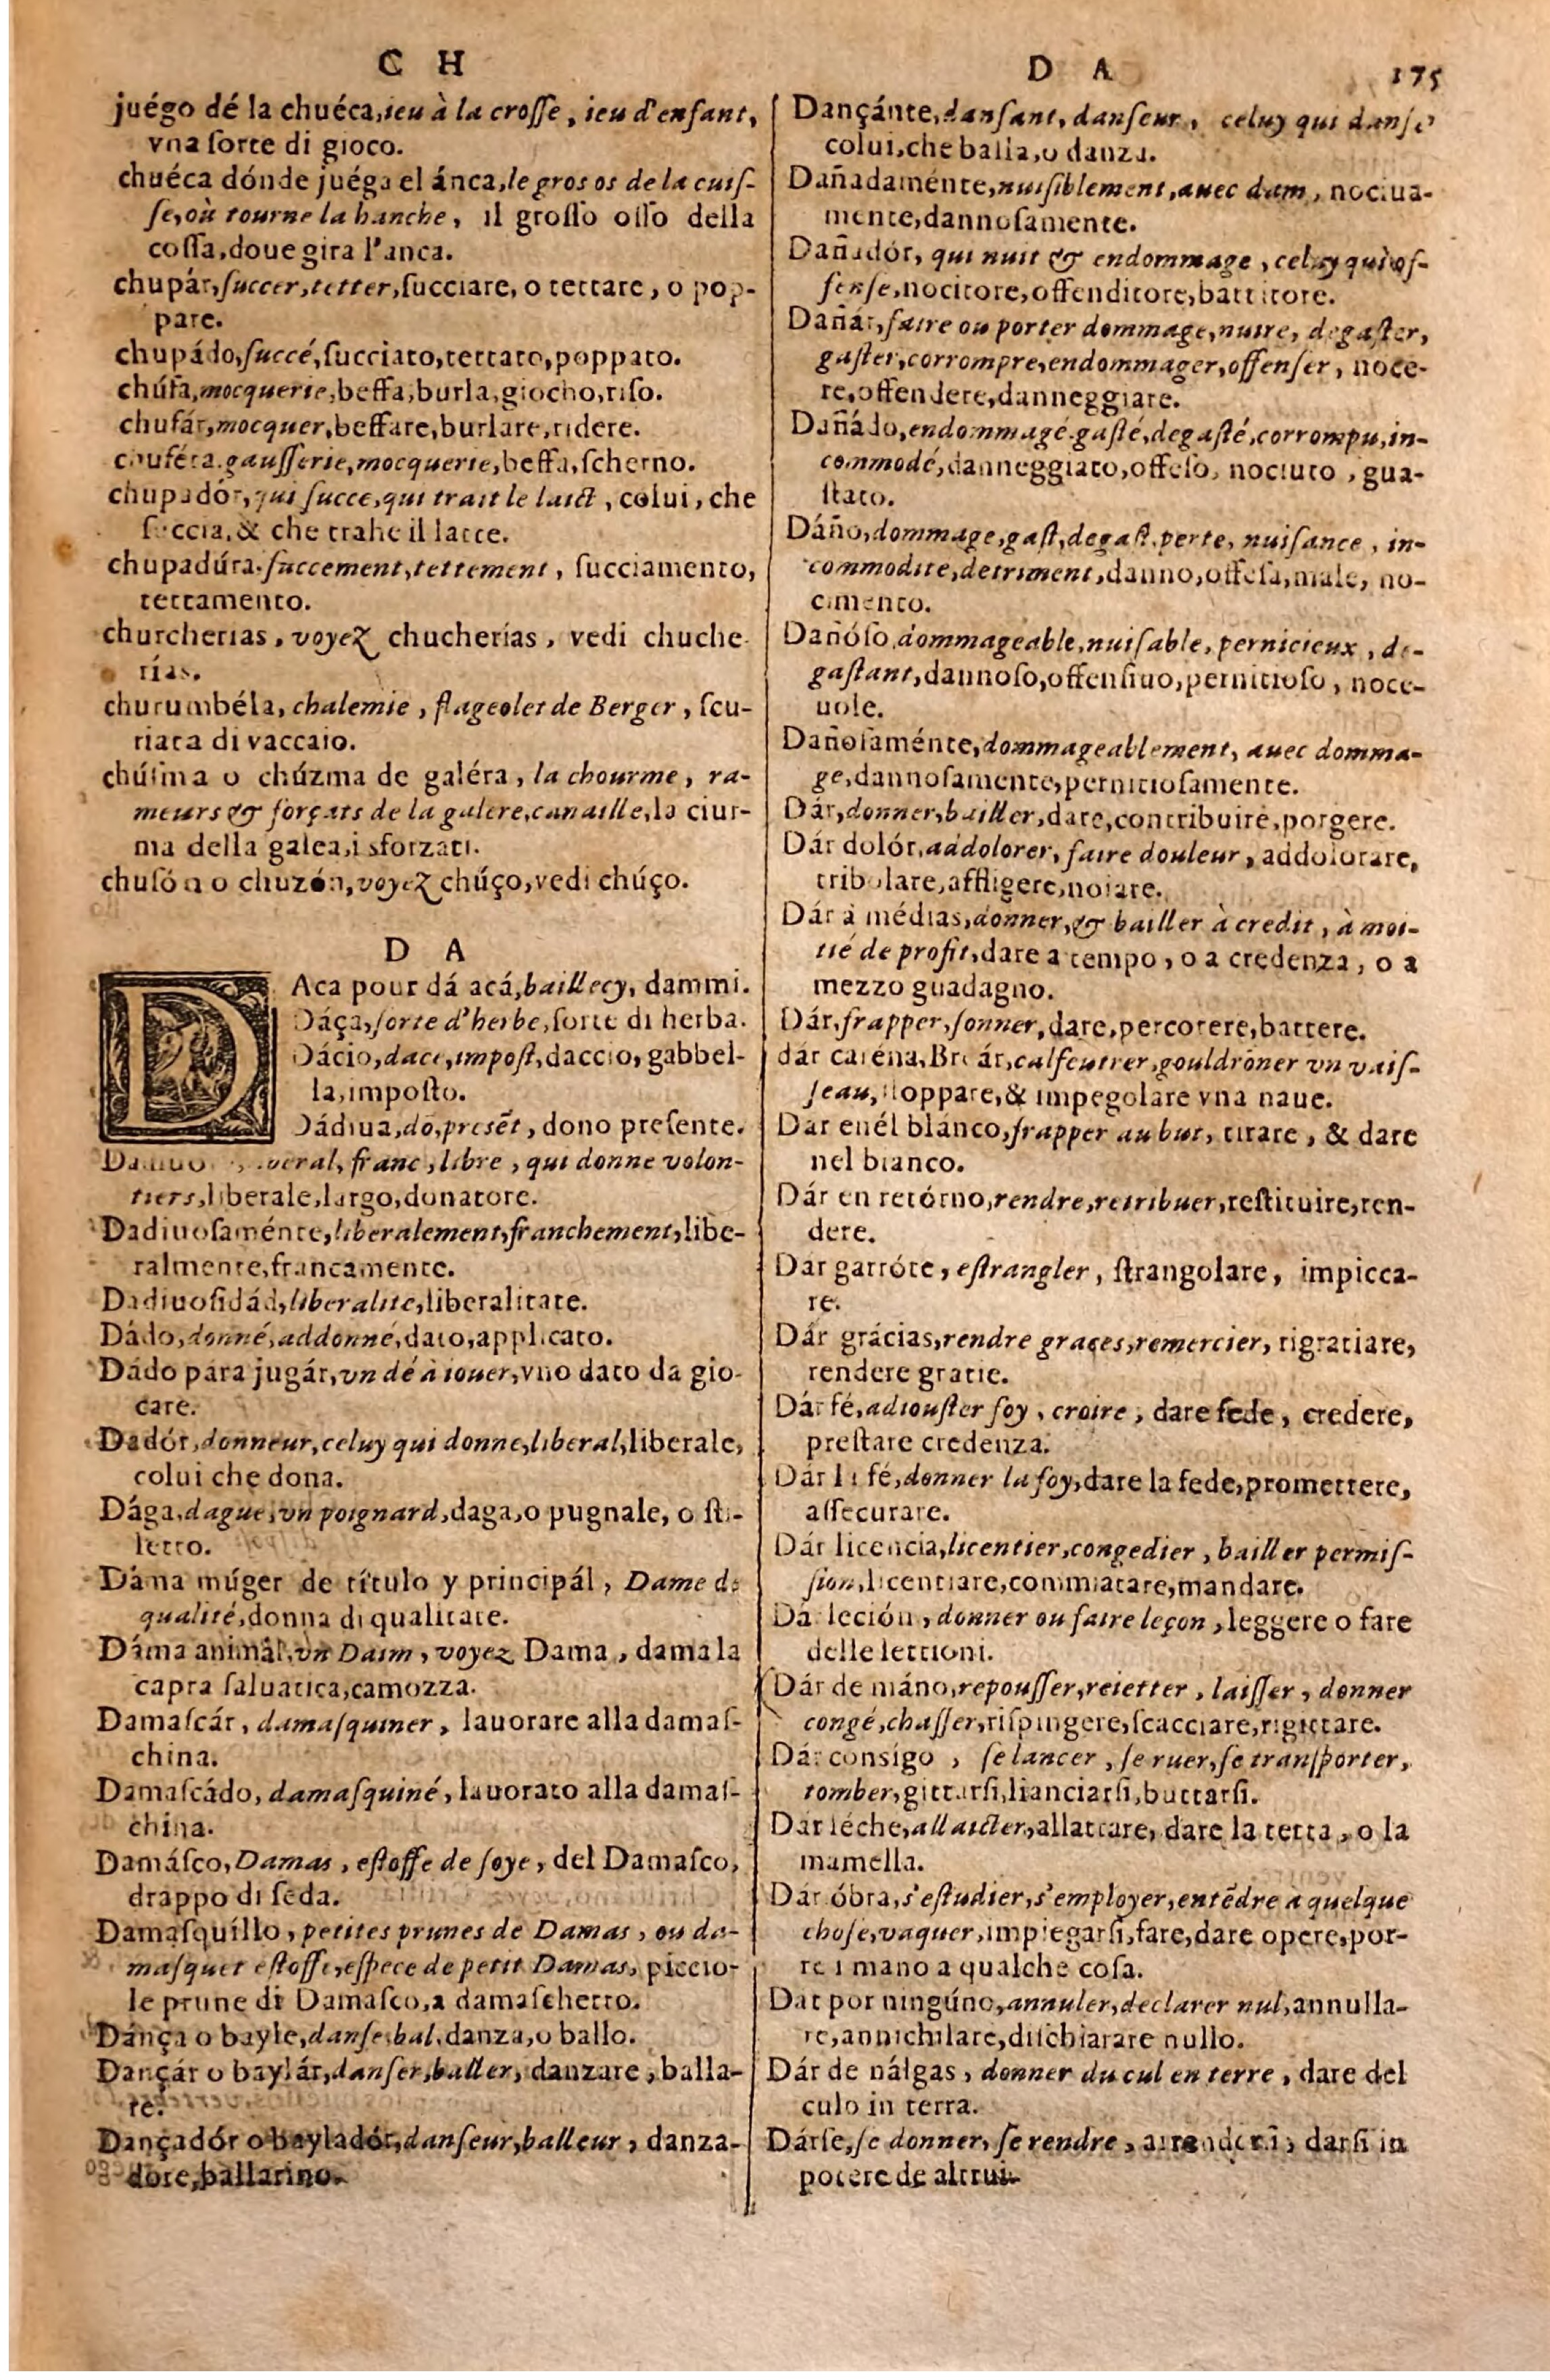 C H
juégo dé la chuéca,ieu à la croſſe, ieu d'enfant,
vna ſorte di gioco.
chuéca dónde juéga el ánca,le gros os de la cuiſ-
ſe,où tourne la hanche, il groſſo oſſo della
coſſa,doue gira l'anca.
chupár,ſuccer,tetter,ſucciare, o tettare, o pop-
pare.
chupádo,ſuccé,ſucciato,tettato,poppato.
chúfa,mocquerie,beffa,burla,giocho,riſo.
chufár,mocquer,beffare,burlare,ridere.
chuféta.gauſſerie,mocquerie,beffa,ſcherno.
chupadór,qui ſucce,qui trait le laict, colui, che
ſuccia,& che trahe il latte.
chupadúra.ſuccement,tettement, ſucciamento,
tettamento.
churcherias, voyez chucherías, vedi chuche-
rías.
churumbéla, chalemie, flageolet de Berger, ſcu-
riata di vaccaio.
chúſma o chúzma de galéra, la chourme, ra-
meurs & forçats de la galere,canaille,la ciur-
ma della galea,i sforzati.
chuſón o chuzón,voyez chúço,vedi chúço.
D A
DAca pour dá acá,baillecy, dammi.
Dáça,ſorte d'herbe,ſorte di herba.
Dácio,dace,impoſt,daccio, gabbel-
la,impoſto.
Dádiua,dō,preſēt, dono preſente.
liberal, franc, libre, qui donne volon-
tiers,liberale,largo,donatore.
Dadiuoſaménte,liberalement,franchement,libe-
ralmente,francamente.
Dadiuoſidád,liberalité,liberalitate.
Dádo,donné,addonné,dato,applicato.
Dádo pára jugár,vn dé à iouer,vno dato da gio-
care.
Dadór,donneur,celuy qui donne,liberal,liberale,
colui che dona.
Dága,dague,vn poignard,daga,o pugnale, o ſti-
letto.
Dáma múger de título y principál, Dame de
qualité,donna di qualitate.
Dáma animál,vn Daim, voyez Dama, dama la
capra ſaluatica,camozza.
Damaſcár, damaſquiner, lauorare alla damaſ-
china.
Damaſcádo, damaſquiné, lauorato alla damaſ-
china.
Damáſco,Damas, eſtoffe de ſoye, del Damaſco,
drappo di ſeda.
Damaſquíllo, petites prunes de Damas, ou da-
maſquet eſtoffe,eſpece de petit Damas, piccio-
le prune di Damaſco,a damaſchetto.
Dánça o bayle,danſe,bal,danza,o ballo.
Dançár o baylár,danſer,baller, danzare, balla-
re.
Dançadór o bayladór,danſeur,balleur, danza-
dore,ballarino.
D A 175
Dançánte,danſant,danſeur, celuy qui danſe
colui,che balla,o danza.
Dañadaménte,nuiſiblement,auec dam, nociua-
mente,dannoſamente.
Dañadór, qui nuit & endommage, celuy qui of-
fenſe,nocitore,offenditore,battitore.
Dañár,faire ou porter dommage,nuire, degaſter,
gaſter,corrompre,endommager,offenſer, noce-
re,offendere,danneggiare.
Dañádo,endommagé,gaſté,degaſté,corrompu,in-
commodé,danneggiato,offeſo, nociuto, gua-
ſtato.
Dáño,dommage,gaſt,degaſt,perte, nuiſance, in-
commodité,detriment,danno,offeſa,male, no-
cimento.
Dañóſo,dommageable,nuiſable, pernicieux, de-
gaſtant,dannoſo,offenſiuo,pernitioſo, noce-
uole.
Dañoſaménte,dommageablement, auec domma-
ge,dannoſamente,pernitioſamente.
Dár,donner,bailler,dare,contribuire,porgere.
Dár dolór,addolorer, faire douleur, addolorare,
tribolare,affligere,noiare.
Dár á médias,donner,& bailler à credit, à moi-
tié de profit,dare a tempo, o a credenza, o a
mezzo guadagno.
Dár,frapper,ſonner,dare,percotere,battere.
dár caréna,Breár,calfeutrer,gouldróner vn vaiſ-
ſeau,ſtoppare,& impegolare vna naue.
Dar enél blánco,frapper au but, tirare, & dare
nel bianco.
Dár en retórno,rendre,retribuer,reſtituire,ren-
dere.
Dar garróte, eſtrangler, ſtrangolare, impicca-
re.
Dár grácias,rendre graces,remercier, rigratiare,
rendere gratie.
Dár fé,adiouſter foy, croire, dare fede, credere,
preſtare credenza.
Dár la fé,donner la foy,dare la fede,promettere,
aſſecurare.
Dár licencia,licentier,congedier, bailler permiſ-
ſion,licentiare,commiatare,mandare.
Dár leción, donner ou faire leçon, leggere o fare
delle lettioni.
Dár de máno,repouſſer,reietter, laiſſer, donner
congé,chaſſer,riſpingere,ſcacciare,rigittare.
Dár consígo, ſe lancer, ſe ruer,ſe tranſporter,
tomber,gittarſi,lianciarſi,buttarſi.
Dár léche,allaicter,allattare, dare la tetta, o la
mamella.
Dár óbra,s'eſtudier,s'employer,entēdre à quelque
choſe,vaquer,impiegarſi,fare,dare opere,por-
re i mano a qualche coſa.
Dar por ningúno,annuler,declarer nul,annulla-
re,annichilare,diſchiarare nullo.
Dár de nálgas, donner du cul en terre, dare del
culo in terra.
Dárſe,ſe donner, ſe rendre, arrenderſi, darſi in
potere de altrui.